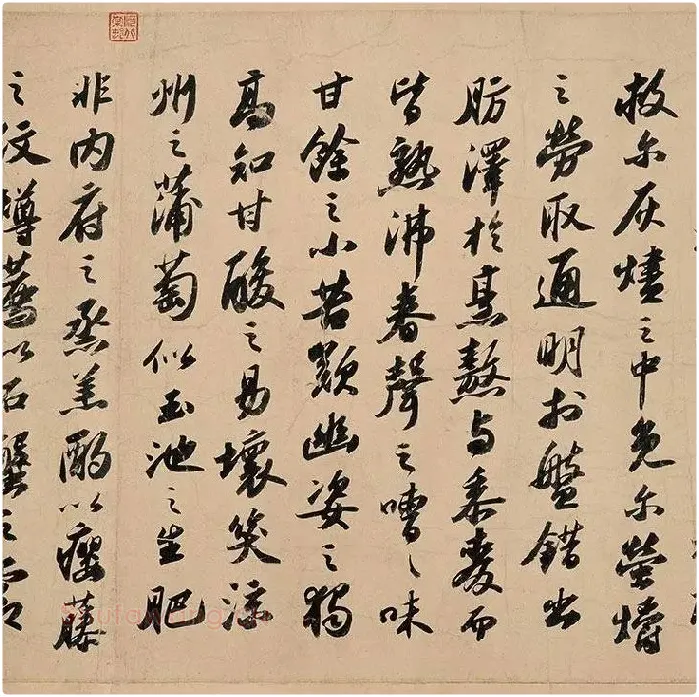 救尔灰燼之中免尔螢爝
之勞取通明於盤錯出
肪澤於烹熬與黍麥而
皆熟沸舂聲之嘈〻味
甘餘之小苦歎幽姿之獨
高知甘酸之易壞笑涼
州之蒲萄似玉池之生肥
非内府之蒸羔酌以癭藤
之纹樽薦以石蟹之霜